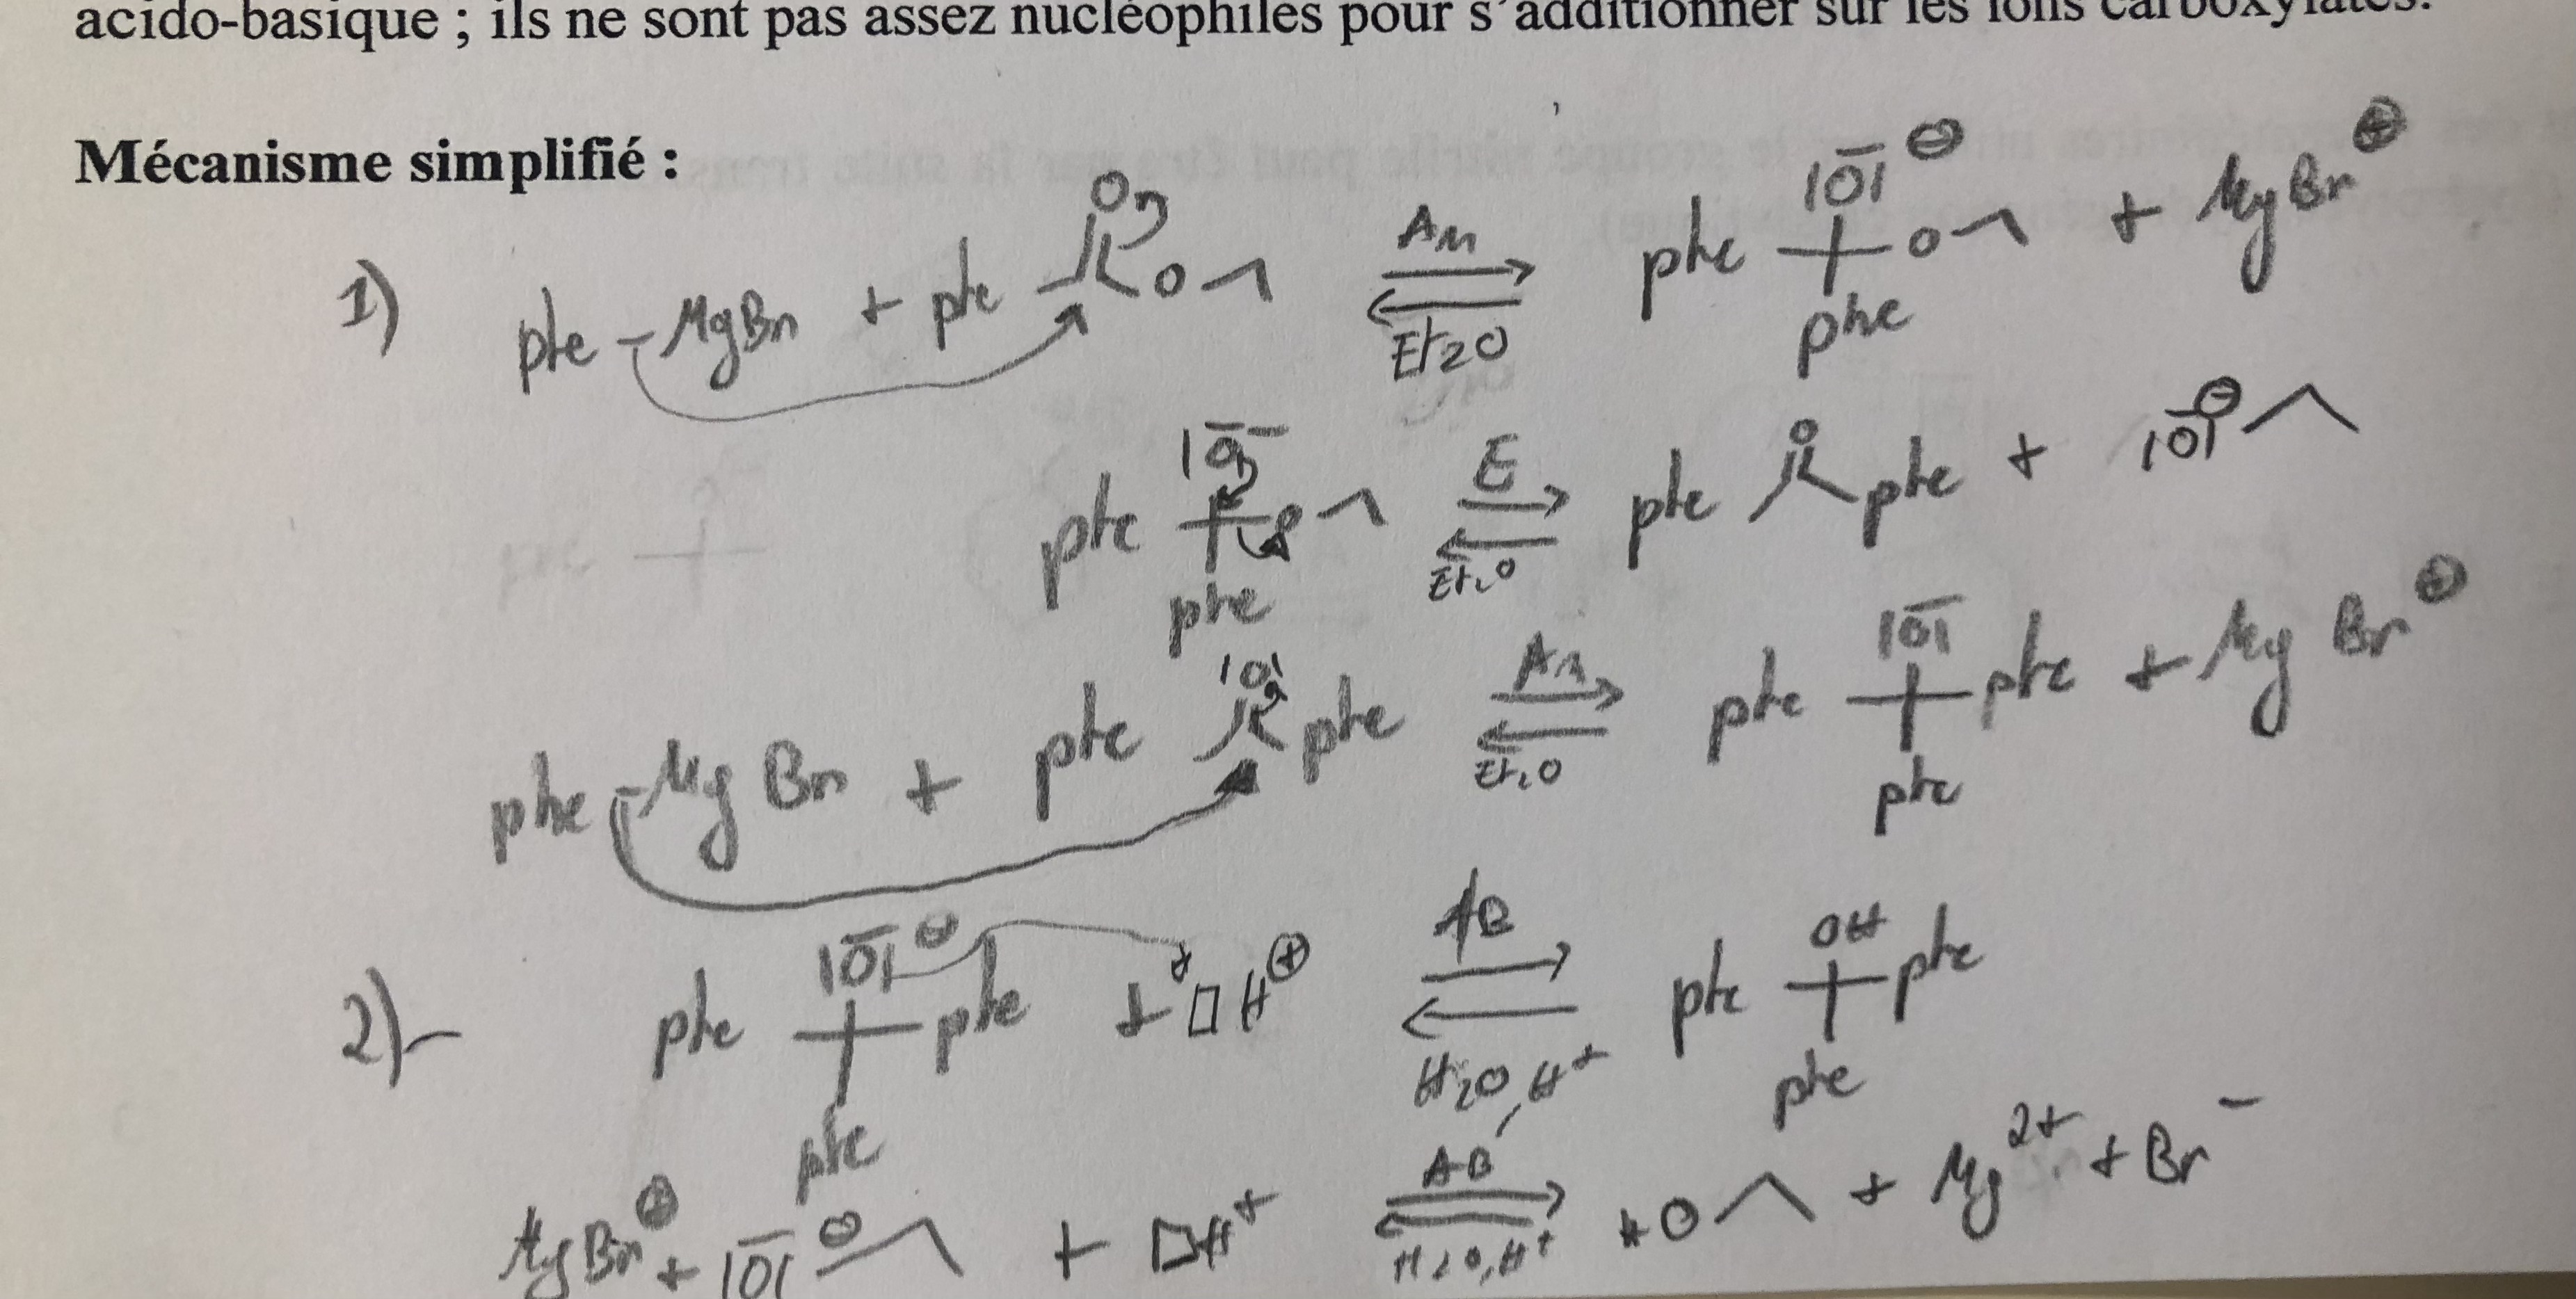 acido-basique ; ils ne sont pas assez nucléophiles pour s'additionner sur les ions carboxylates.
Mécanisme simplifié :
1) phe - MgBr + phe O O AN Et2O phe |O| ⊖ O phe + MgBr ⊕
phe |O| - O phe E Et2O phe O phe + |O| ⊖
phe - MgBr + phe |O| phe AN Et2O phe |O| phe phe + MgBr ⊕
2)- phe |O| ⊖ phe phe + □H ⊕ AB H2O, H+ phe OH phe phe
MgBr ⊕ + |O| ⊖ + □H+ AB H2O, H+ HO + Mg2+ + Br-